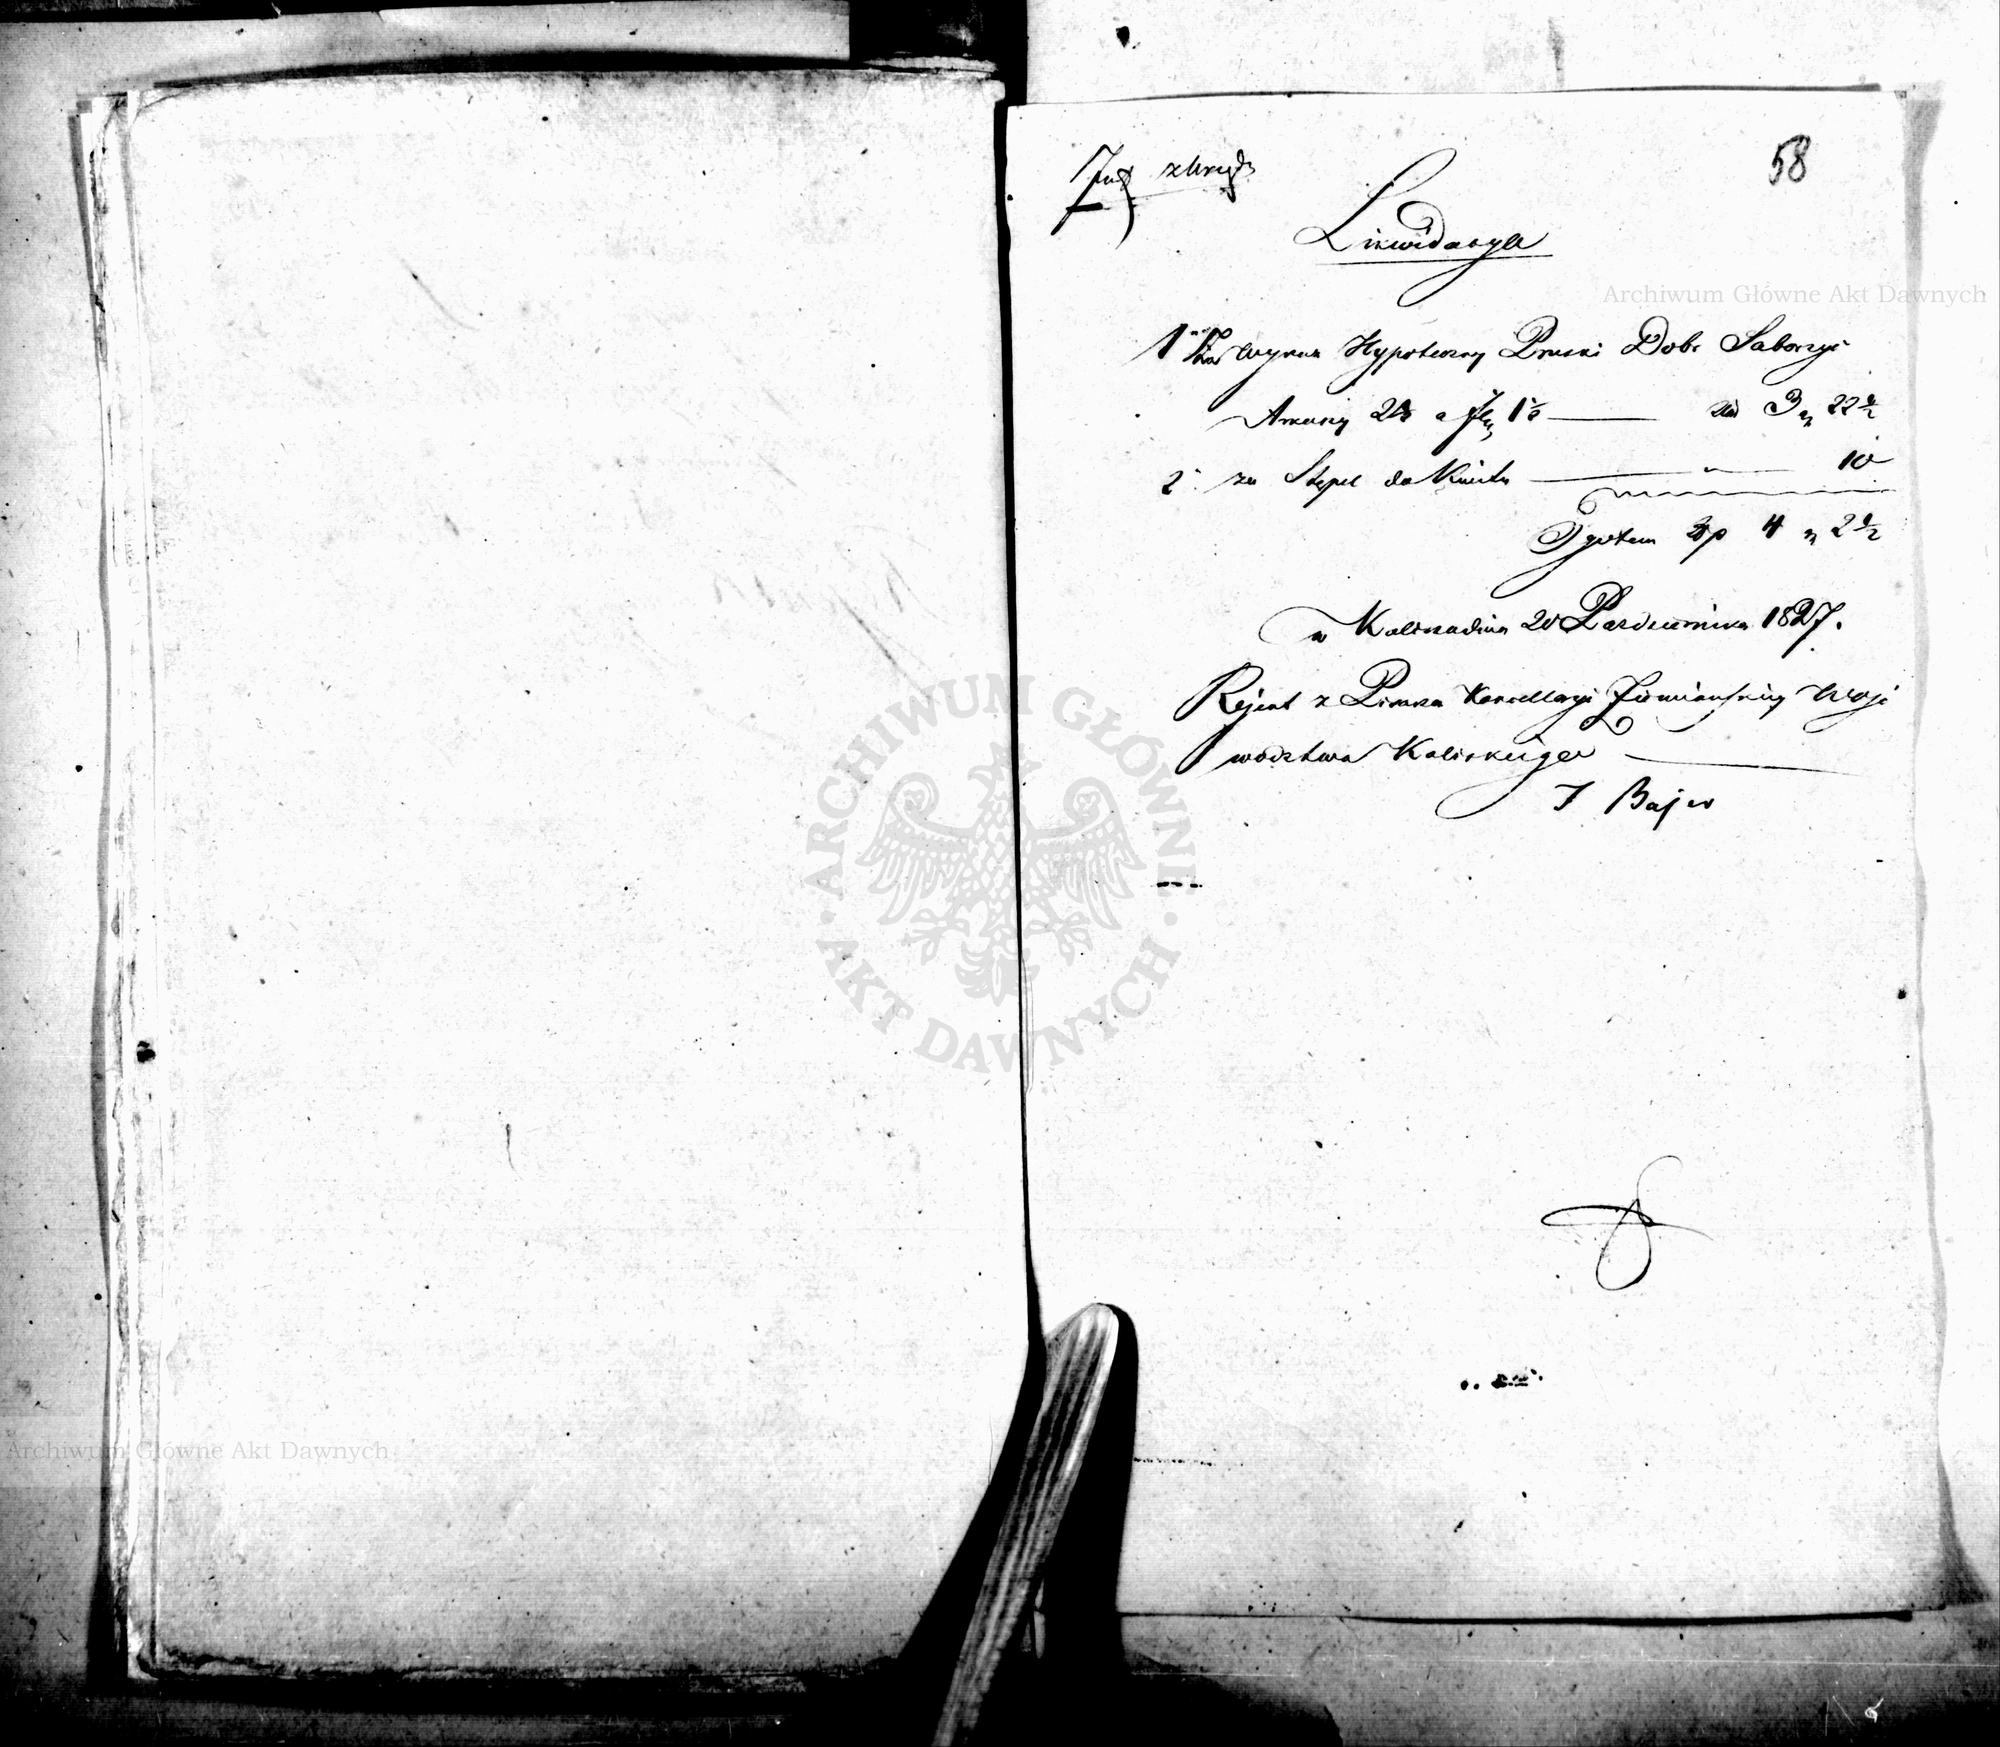 58
Likwidacya
1 Za Wykaz Hypoteczny Pruski Dobr
Arkuszy 2½ a 1½ — Zł 3 „ 22½
2 za Stępel do Kwitu — „ — 10
Ogółem Złp 4 „ 2½
w Kaliszu dnia 20 Października 1827.
Rejent z Pisarza Kancellaryi Ziemiańskiey Woje
wództwa Kaliskiego —
Archiwum Główne Akt Dawnych
ARCHIWUM GŁÓWNE · AKT DAWNYCH ·
Archiwum Główne Akt Dawnych